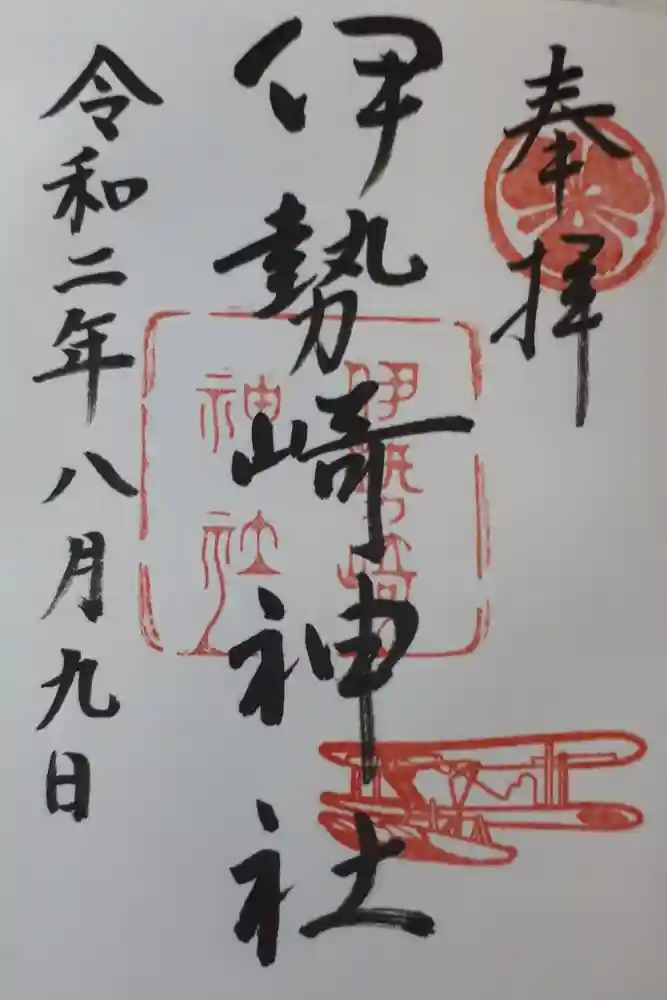 奉拝
伊勢崎神社
伊勢崎
神社
令和二年八月九日